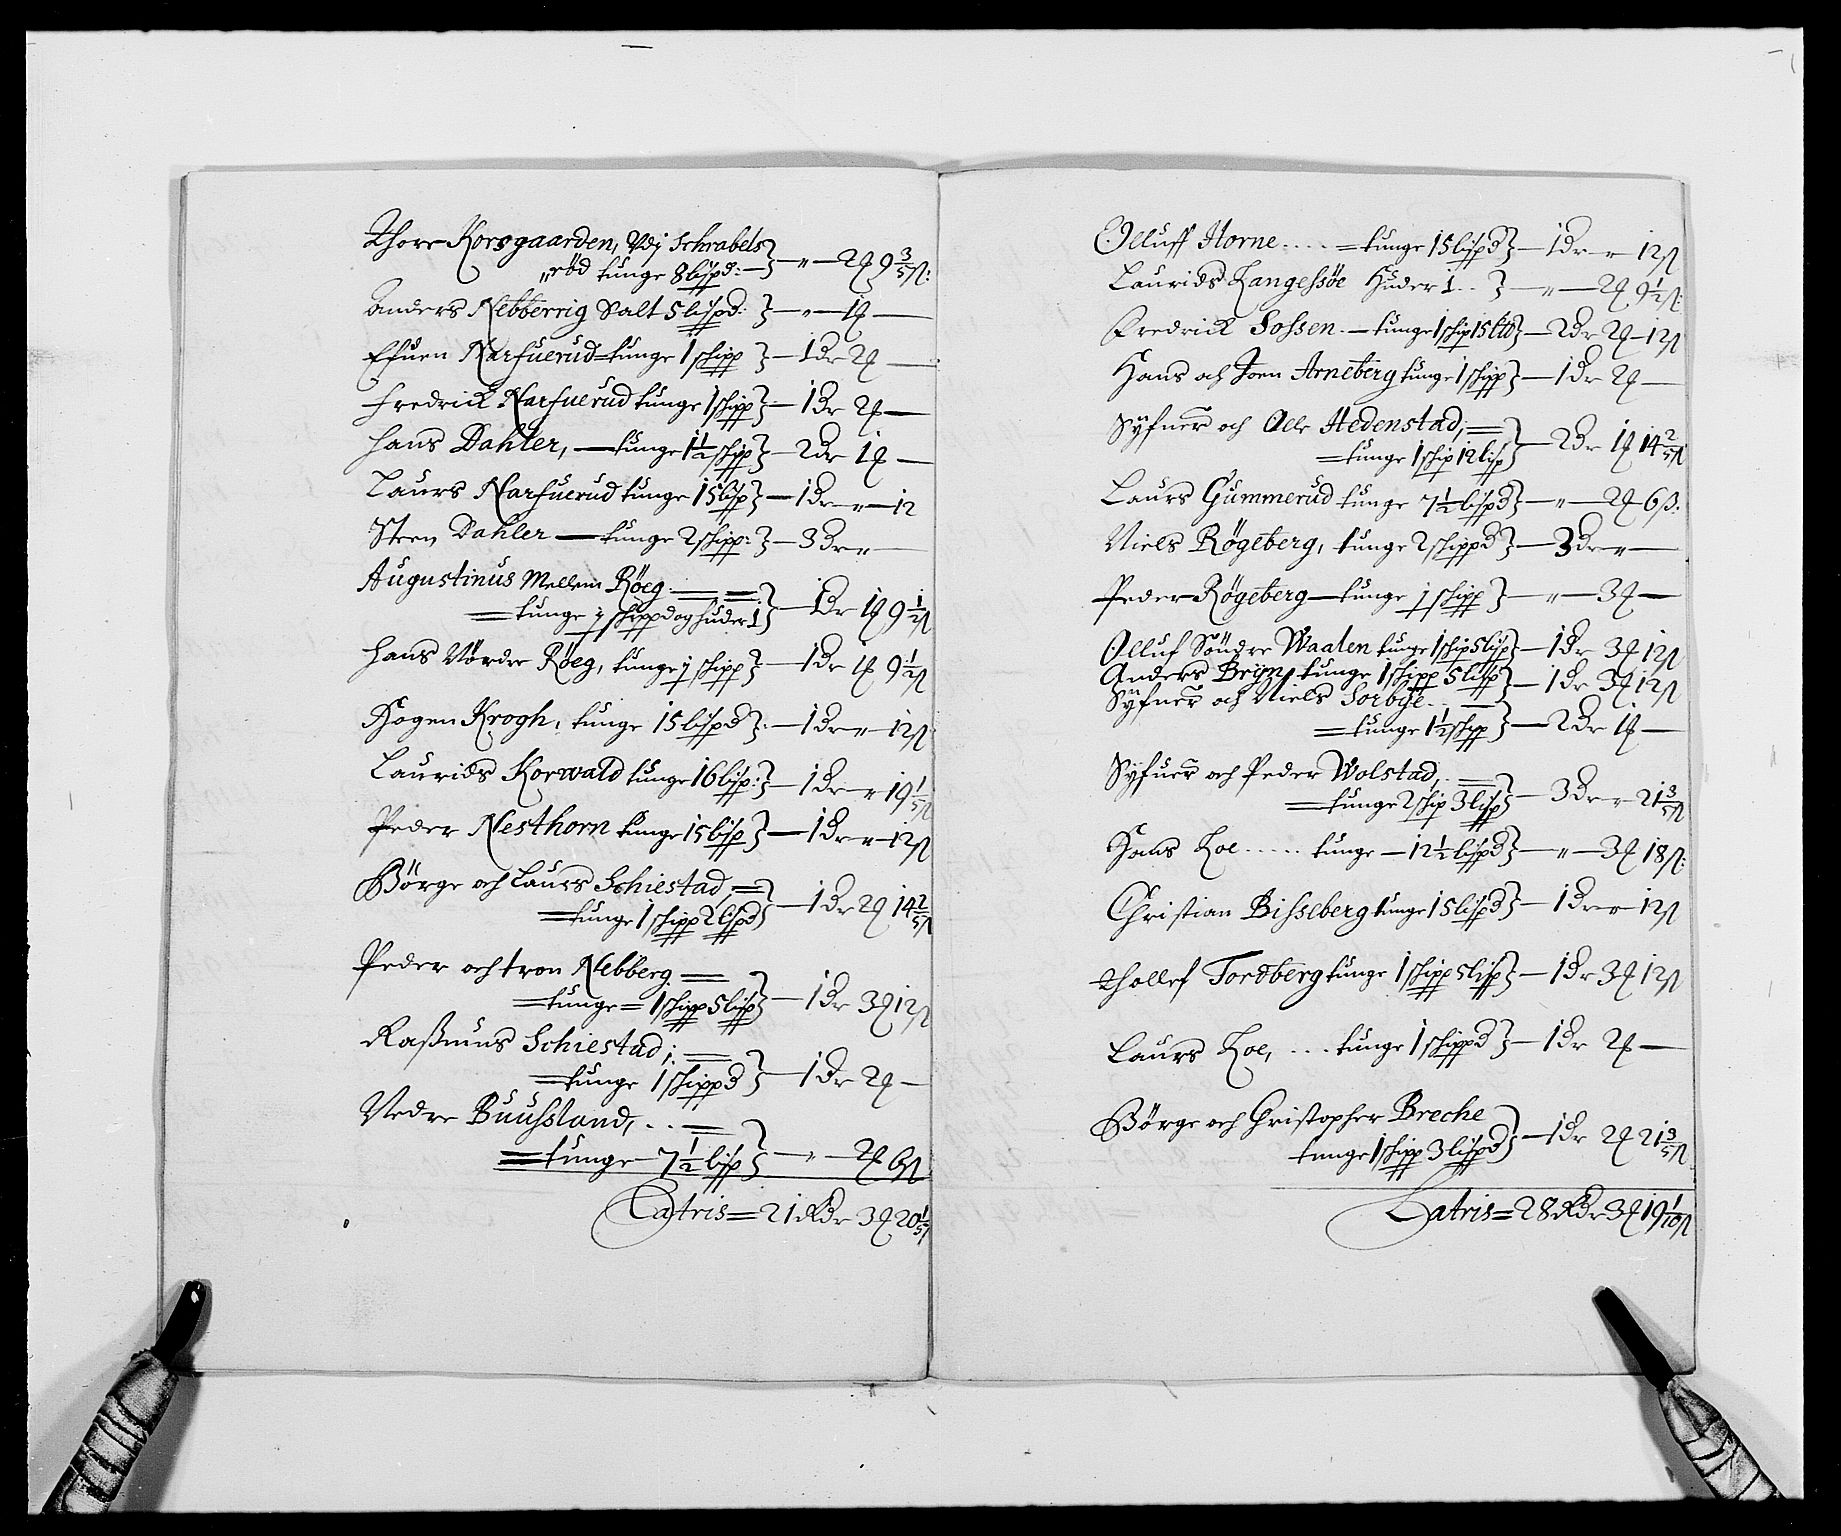 Thore Korsgaarden, Vdj Schrabels
„röd tunge 8 lispd: — } — „ — 2 ƺ 9 3/5 ß:
Anders Nebberrig Salt 5 lispd: } — „ — 1 ƺ —
Efuen Narfuerud = tunge 1 schipp } — 1 dr 2 ƺ —
Fredrick Narfuerud tunge 1 schipp } — 1 dr 2 ƺ —
Hans Dahler, — tunge 1 1/2 schipp } — 2 dr 1 ƺ —
Laurs Narfuerud tunge 15 lisp } — 1 dr — „ — 12
Steen Dahler — tunge 2 schipp: } — 3 dr — „ —
Augustinus Mellem Röeg: = =
= tunge j schippd og huder 1 } — 1 dr 1 ƺ 9 1/2 ß
Hans Nördre Röeg, tunge j schipp } — 1 dr 1 ƺ 9 1/2 ß
Hogen Krogh, tunge 15 lispd } — 1 dr — „ — 12 ß
Laurids Korwald tunge 16 lisp: } — 1 dr — „ — 19 1/5 ß
Peder Nesthorn tunge 15 lisp } — 1 dr — „ — 12 ß
Börge och Laurs Schiestad, =
= tunge 1 schipp 2 lispd } — 1 dr 2 ƺ 14 2/5 ß
Peder och tron Nebberg =
= tunge = 1 schipp 5 lisp } — 1 dr 3 ƺ 12 ß
Raßmus Schiestad; =
= tunge 1 schippd } — 1 dr 2 ƺ —
Nedre Buusland, . . =
= tunge — 7 1/2 lisp } — „ — 2 ƺ 6 ß
Latris = 21 Rdr 3 ƺ 20 1/5 ß
Olluff Horne . . . . = tunge 15 lispd } — 1 dr — „ — 12 ß
Laurids Langessöe Huder 1 . . } — „ — 2 ƺ 9 1/2 ß:
Fredrick Sossen — tunge 1 schip 15 ltt } — 2 dr 2 ƺ — 12 ß
Hans och Joen Arneberg tunge 1 schipp } — 1 dr 2 ƺ —
Syfuer och Olle Hedenstad, =
= tunge 1 schip 12 lisp } — 2 dr 1 ƺ 14 2/5 ß
Laurs Gummerud tunge 7 1/2 lispd } — „ — 2 ƺ 6 ß:
Niels Rögeberg, tunge 2 schippd } — 3 dr — „ —
Peder Rögeberg — tunge j schipp } — „ — 3 ƺ —
Olluf Söndre Waalen tunge 1 schip 5 lisp } — 1 dr 3 ƺ 12 ß
Anders Bryn, tunge 1 schipp 5 lisp } — 1 dr 3 ƺ 12 ß
Syfuer och Niels Sorbye . . =
= tunge 1 1/2 schipp } — 2 dr 1 ƺ —
Syfuer och Peder Wolstad, . =
= tunge 2 schip 3 lisp } — 3 dr — „ 21 3/5 ß
Hans Loe . . . . . tunge — 12 1/2 lispd } — „ — 3 ƺ 18 ß:
Christian Bisseberg tunge 15 lispd } — 1 dr — „ — 12 ß
Thollef Tordberg tunge 1 schipp 5 lisp } — 1 dr 3 ƺ 12 ß
Laurs Loe, . . . tunge 1 schippd } — 1 dr 2 ƺ —
Börge och Christopher Breche
tunge 1 schipp 3 lispd } — 1 dr 2 ƺ 21 3/5 ß
Latris = 28 Rdr 3 ƺ 19 1/10 ß